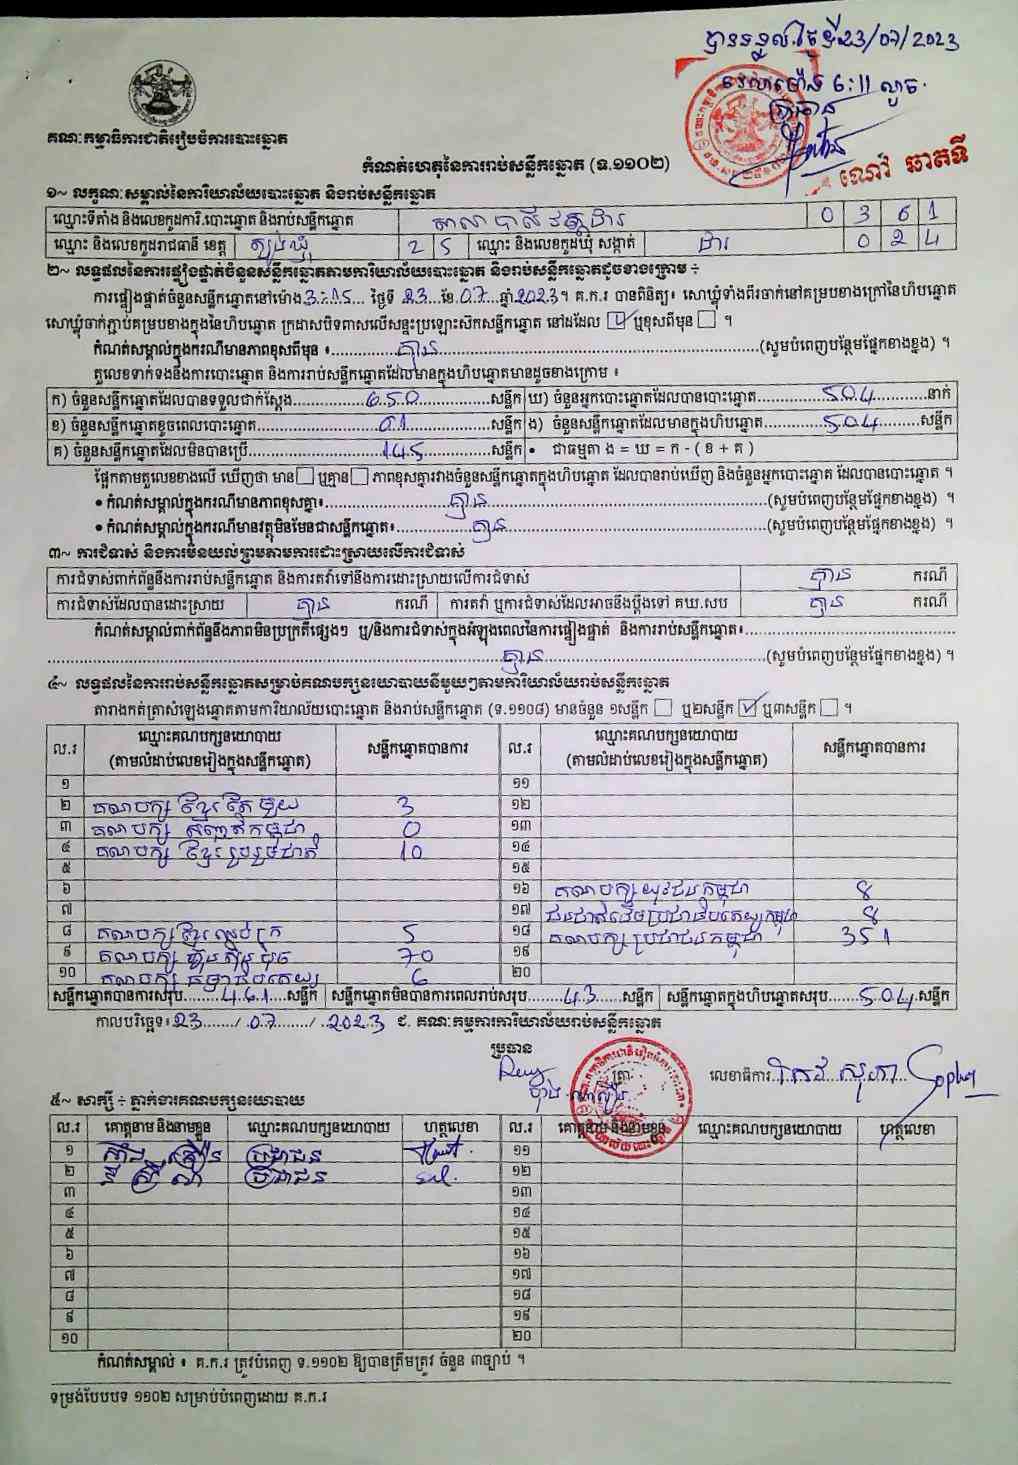 បានទទួល ថ្ងៃទី23/07/2023
វេលាម៉ោង 6:11 ល្ងាច
ប្រធាន
ណៅ ឆាតទី
គណៈកម្មាធិការជាតិរៀបចំការបោះឆ្នោត
កំណត់ហេតុនៃការរាប់សន្លឹកឆ្នោត (ទ.១១០២)
១~ លក្ខណៈសម្គាល់នៃការិយាល័យបោះឆ្នោត និងរាប់សន្លឹកឆ្នោត
ឈ្មោះទីតាំង និងលេខកូដការិ.បោះឆ្នោត និងរាប់សន្លឹកឆ្នោត សាលាបាលីវត្តដារ 0 3 6 1
ឈ្មោះ និងលេខកូដរាជធានី ខេត្ត ត្បូងឃ្មុំ 2 5 ឈ្មោះ និងលេខកូដឃុំ សង្កាត់ ដារ 0 2 4
២~ លទ្ធផលនៃការផ្ទៀងផ្ទាត់ចំនួនសន្លឹកឆ្នោតតាមការិយាល័យបោះឆ្នោត និងរាប់សន្លឹកឆ្នោតដូចខាងក្រោម ÷
ការផ្ទៀងផ្ទាត់ចំនួនសន្លឹកឆ្នោតនៅម៉ោង 3:15 ថ្ងៃទី 23 ខែ 07 ឆ្នាំ 2023។ គ.ក.រ បានពិនិត្យ៖ សោឃ្លុំទាំងពីរចាក់នៅគម្របខាងក្រៅនៃហិបឆ្នោត
សោឃ្លុំចាក់ភ្ជាប់គម្របខាងក្នុងនៃហិបឆ្នោត ក្រដាសបិទពាសលើសន្ទះប្រឡោះស៊កសន្លឹកឆ្នោត នៅដដែល ☑ ឬខុសពីមុន ☐ ។
កំណត់សម្គាល់ក្នុងករណីមានភាពខុសពីមុន ៖ គ្មាន (សូមបំពេញបន្ថែមផ្នែកខាងខ្នង) ។
តួលេខទាក់ទងនឹងការបោះឆ្នោត និងការរាប់សន្លឹកឆ្នោតដែលមានក្នុងហិបឆ្នោតមានដូចខាងក្រោម ៖
ក) ចំនួនសន្លឹកឆ្នោតដែលបានទទួលជាក់ស្តែង 650 សន្លឹក ឃ) ចំនួនអ្នកបោះឆ្នោតដែលបានបោះឆ្នោត 504 នាក់
ខ) ចំនួនសន្លឹកឆ្នោតខូចពេលបោះឆ្នោត 01 សន្លឹក ង) ចំនួនសន្លឹកឆ្នោតដែលមានក្នុងហិបឆ្នោត 504 សន្លឹក
គ) ចំនួនសន្លឹកឆ្នោតដែលមិនបានប្រើ 145 សន្លឹក • ជាធម្មតា ង = ឃ = ក - ( ខ + គ )
ផ្អែកតាមតួលេខខាងលើ ឃើញថា មាន ☐ ឬគ្មាន ☐ ភាពខុសគ្នារវាងចំនួនសន្លឹកឆ្នោតក្នុងហិបឆ្នោត ដែលបានរាប់ឃើញ និងចំនួនអ្នកបោះឆ្នោត ដែលបានបោះឆ្នោត ។
• កំណត់សម្គាល់ក្នុងករណីមានភាពខុសគ្នា៖ គ្មាន (សូមបំពេញបន្ថែមផ្នែកខាងខ្នង) ។
• កំណត់សម្គាល់ក្នុងករណីមានវត្ថុមិនមែនជាសន្លឹកឆ្នោត៖ គ្មាន (សូមបំពេញបន្ថែមផ្នែកខាងខ្នង) ។
៣~ ការជំទាស់ និងការមិនយល់ព្រមតាមការដោះស្រាយលើការជំទាស់
ការជំទាស់ពាក់ព័ន្ធនឹងការរាប់សន្លឹកឆ្នោត និងការតវ៉ាទៅនឹងការដោះស្រាយលើការជំទាស់ គ្មាន ករណី
ការជំទាស់ដែលបានដោះស្រាយ គ្មាន ករណី ការតវ៉ា ឬការជំទាស់ដែលអាចនឹងប្តឹងទៅ គឃ.សប គ្មាន ករណី
កំណត់សម្គាល់ពាក់ព័ន្ធនឹងភាពមិនប្រក្រតីផ្សេងៗ ឬ/និងការជំទាស់ក្នុងអំឡុងពេលនៃការផ្ទៀងផ្ទាត់ និងការរាប់សន្លឹកឆ្នោត៖
គ្មាន (សូមបំពេញបន្ថែមផ្នែកខាងខ្នង) ។
៤~ លទ្ធផលនៃការរាប់សន្លឹកឆ្នោតសម្រាប់គណបក្សនយោបាយនីមួយៗតាមការិយាល័យរាប់សន្លឹកឆ្នោត
តារាងកត់ត្រាសំឡេងឆ្នោតតាមការិយាល័យបោះឆ្នោត និងរាប់សន្លឹកឆ្នោត (ទ.១១០៨) មានចំនួន ១សន្លឹក ☐ ឬ២សន្លឹក ☑ ឬ៣សន្លឹក ☐ ។
ល.រ ឈ្មោះគណបក្សនយោបាយ (តាមលំដាប់លេខរៀងក្នុងសន្លឹកឆ្នោត) សន្លឹកឆ្នោតបានការ ល.រ ឈ្មោះគណបក្សនយោបាយ (តាមលំដាប់លេខរៀងក្នុងសន្លឹកឆ្នោត) សន្លឹកឆ្នោតបានការ
១ ១១
២ គណបក្ស ខ្មែរតែមួយ 3 ១២
៣ គណបក្ស សញ្ជាតិកម្ពុជា 0 ១៣
៤ គណបក្ស ខ្មែររួបរួមជាតិ 10 ១៤
៥ ១៥
៦ ១៦ គណបក្សយុវជនកម្ពុជា 8
៧ ១៧ ជនជាតិដើមប្រជាធិបតេយ្យកម្ពុជា 8
៨ គណបក្ស ខ្មែរឈប់ក្រ 5 ១៨ គណបក្ស ប្រជាជនកម្ពុជា 351
៩ គណបក្ស ហ្វ៊ុនស៊ិនប៉ិច 70 ១៩
១០ គណបក្ស ធម្មាធិបតេយ្យ 6 ២០
សន្លឹកឆ្នោតបានការសរុប 461 សន្លឹក សន្លឹកឆ្នោតមិនបានការពេលរាប់សរុប 43 សន្លឹក សន្លឹកឆ្នោតក្នុងហិបឆ្នោតសរុប 504 សន្លឹក
កាលបរិច្ឆេទ៖ 23 / 07 / 2023 ជ. គណៈកម្មការការិយាល័យរាប់សន្លឹកឆ្នោត
ប្រធាន
ត្រា លេខាធិការ
៥~ សាក្សី ÷ ភ្នាក់ងារគណបក្សនយោបាយ
ល.រ គោត្តនាម និងនាមខ្លួន ឈ្មោះគណបក្សនយោបាយ ហត្ថលេខា ល.រ គោត្តនាម និងនាមខ្លួន ឈ្មោះគណបក្សនយោបាយ ហត្ថលេខា
១ ប្រជាជន ១១
២ ប្រជាជន ១២
៣ ១៣
៤ ១៤
៥ ១៥
៦ ១៦
៧ ១៧
៨ ១៨
៩ ១៩
១០ ២០
កំណត់សម្គាល់ ៖ គ.ក.រ ត្រូវបំពេញ ទ.១១០២ ឱ្យបានត្រឹមត្រូវ ចំនួន ៣ច្បាប់ ។
ទម្រង់បែបបទ ១១០២ សម្រាប់បំពេញដោយ គ.ក.រ